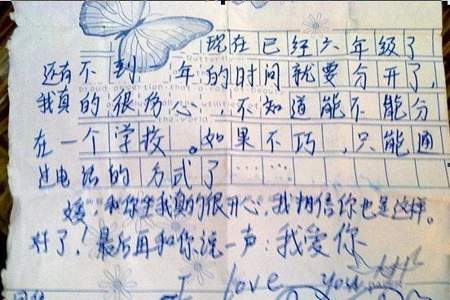 现在已经六年级了
还有不到一年的时间就要分开了,
我真的很伤心,不知道能不能分
在一个学校。如果不巧,只能通
过电话的方式了……
和你坐我真的很开心,我相信你也是这样。
对了!最后再和你说一声:我爱你
I love you